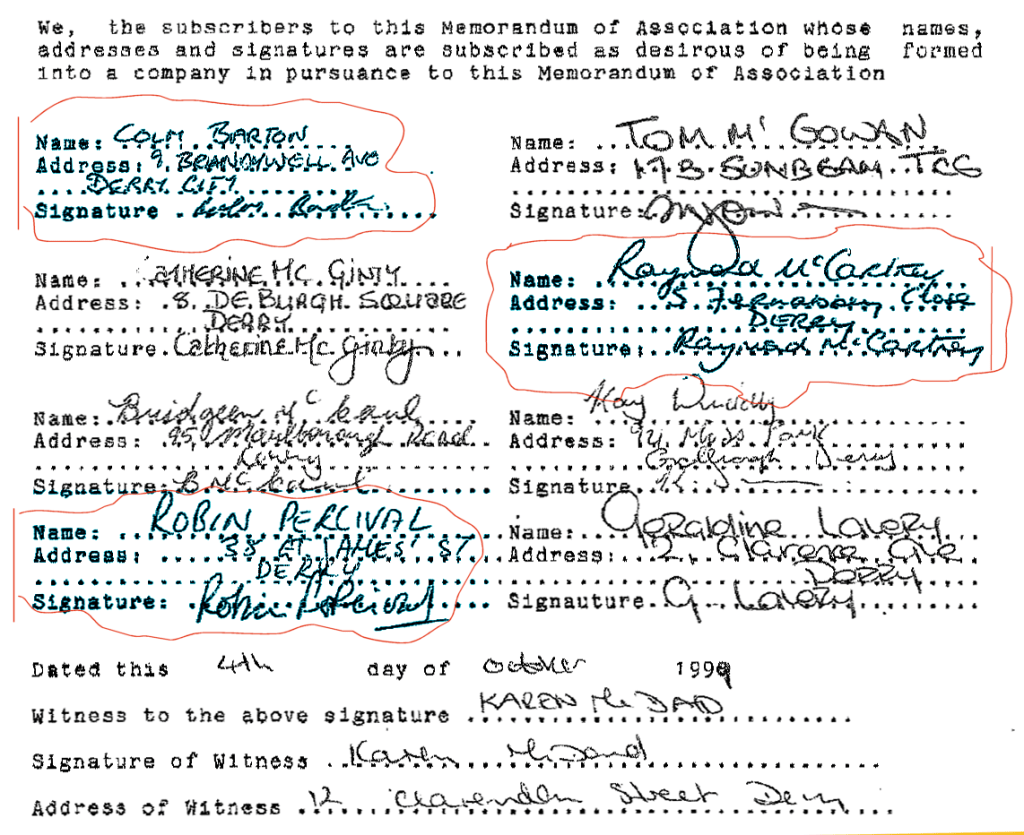 We, the subscribers to this Memorandum of Association whose names,
addresses and signatures are subscribed as desirous of being formed
into a company in pursuance to this Memorandum of Association
Name: COLM BARTON
Address: 9. BRANDYWELL AVE
DERRY CITY
Signature
Name: TOM M' GOWAN
Address: 17B. SUNBEAM TCE
Signature:
Name: CATHERINE MC GINTY
Address: 8. DE BURGH SQUARE
DERRY
Signature. Catherine Mc Ginty
Name: Raymond McCartney
Address: 5 Close
DERRY
Signature: Raymond McCartney
Name: Bridgeen Mc
Address: 95, Marlborough Road
Derry
Signature: B Mc
Name: Kay
Address: Park
Derry
Signature.
Name: ROBIN PERCIVAL
Address: 38 ST JAMES' ST
DERRY
Signature: Robin Percival
Name: Geraldine Lavery
Address: 12, Clarence Ave
Derry
Signauture. G. Lavery
Dated this 4th day of october 1999
Witness to the above signature KAREN Mc DAID
Signature of Witness Karen McDaid
Address of Witness 12 Clarendon Street Derry